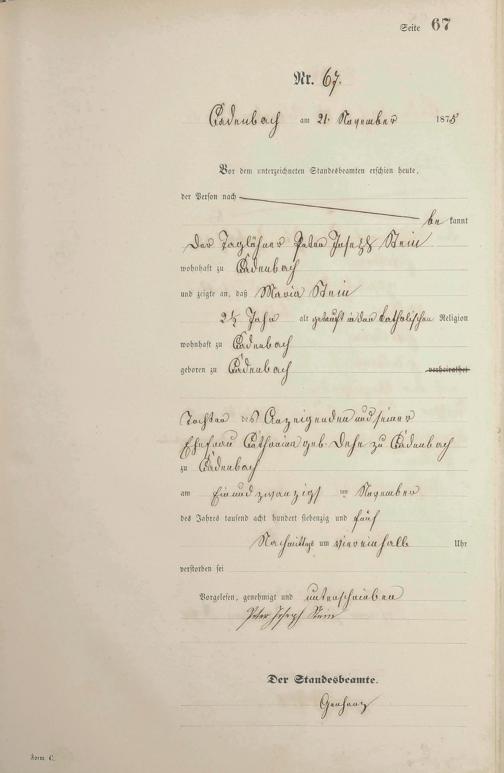 Seite 67
Nr. 67.
Cadenbach am 21. November 1875
Vor dem unterzeichneten Standesbeamten erschien heute,
der Person nach
bekannt
der Taglöhner Peter Joseph Stein
wohnhaft zu Cadenbach
und zeigte an, daß Maria Stein
2½ Jahr alt getauft in der katholischen Religion
wohnhaft zu Cadenbach
geboren zu Cadenbach verheirathet
Tochter des Anzeigenden und seiner
Ehefrau Catharina geb. Dehe zu Cadenbach
zu Cadenbach
am Einundzwanzigst November
des Jahres tausend acht hundert siebenzig und fünf
Nachmittags um viereinhalb Uhr
verstorben sei
Vorgelesen, genehmigt und unterschrieben
Peter Joseph Stein
Der Standesbeamte.
Form. C.